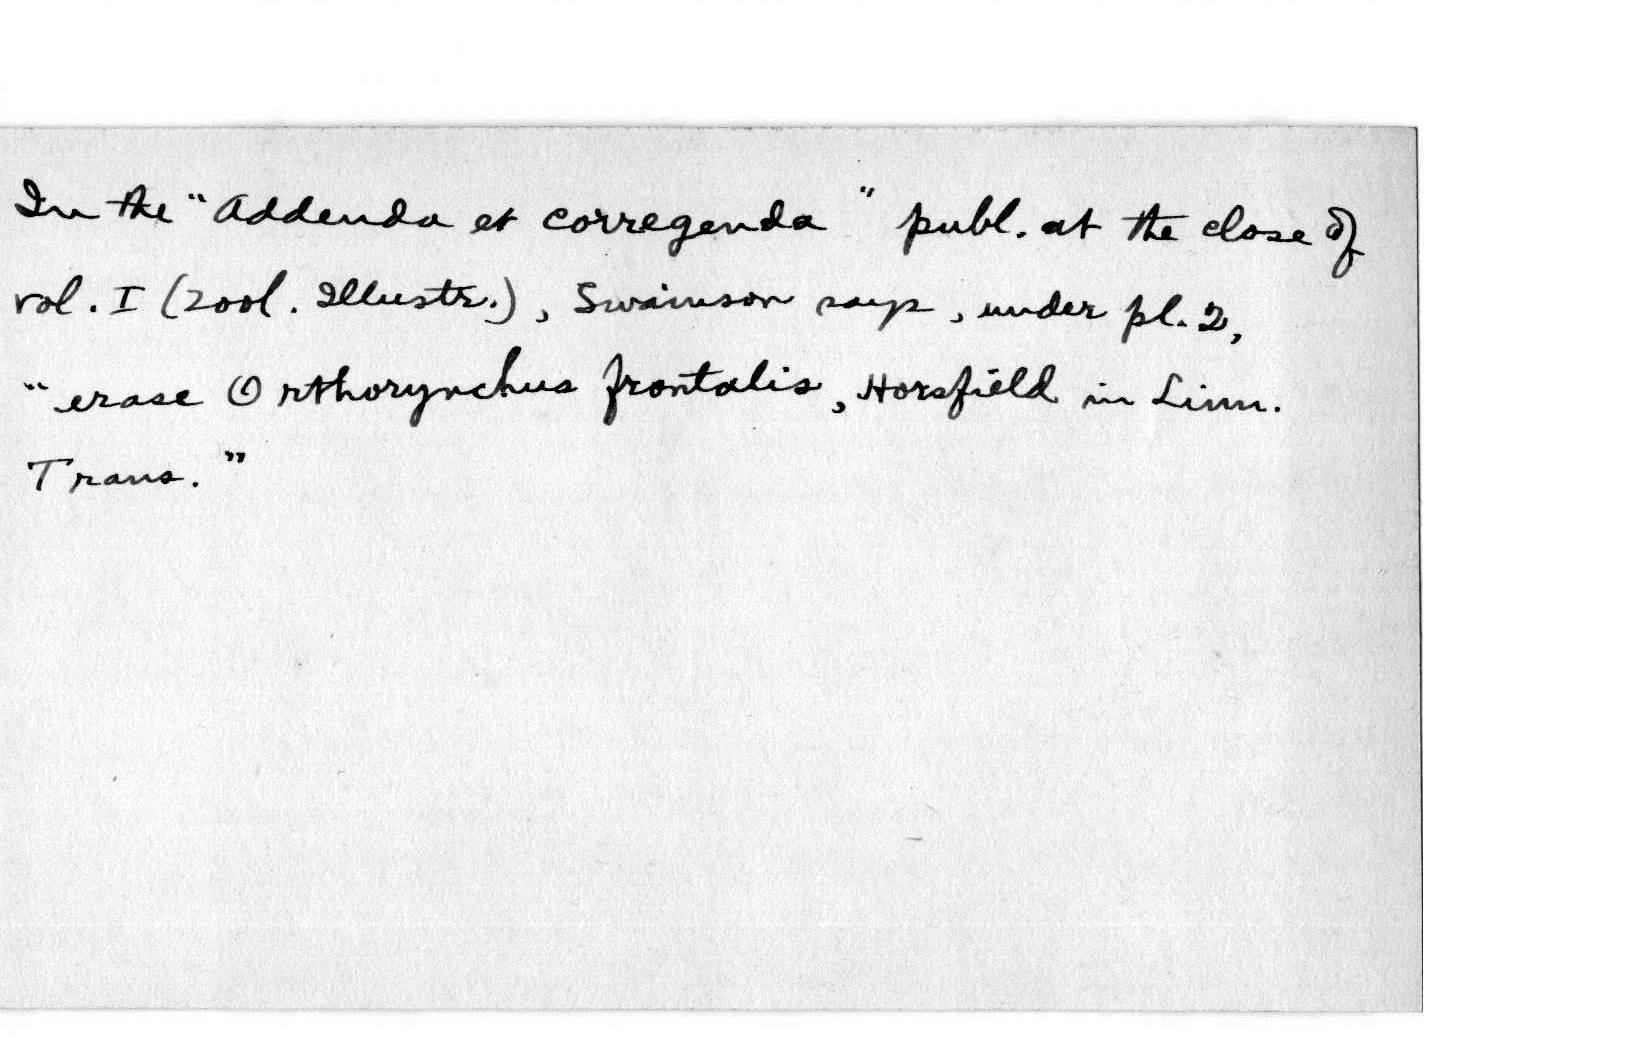 In the "Addenda et corregenda" publ. at the close of
vol. I (Zool. Illustr.), Swainson says, under pl. 2,
"erase Orthorynchus frontalis, Horsfield in Linn.
Trans."